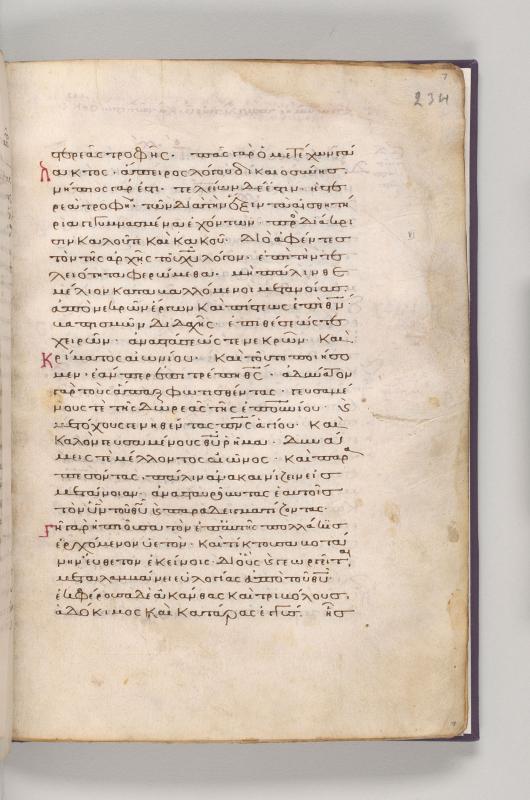 234
στερεᾶς τροφῆς· πᾶς γὰρ ὁ μετέχων γά
λακτος· ἄπειρος λόγου δικαιοσύνης·
νήπιος γάρ ἐστι· τελείων δέ ἐστιν ἡ στε
ρεὰ τροφή· τῶν διὰ τὴν ἕξιν τὰ αἰσθητή
ρια γεγυμνασμένα ἐχόντων πρὸς διάκρι
σιν καλοῦ τε καὶ κακοῦ· Διὸ ἀφέντες
τὸν τῆς ἀρχῆς τοῦ χυ λόγον· ἐπὶ τὴν τε
λειότητα φερώμεθα· μὴ πάλιν θε
μέλιον καταβαλλόμενοι μετανοίας
ἀπὸ νεκρῶν ἔργων καὶ πίστεως ἐπὶ θν
βαπτισμῶν διδαχῆς· ἐπιθέσεώς τε
χειρῶν· ἀναστάσεώς τε νεκρῶν· καὶ
κρίματος αἰωνίου· καὶ τοῦτο ποιήσο
μεν· ἐάνπερ ἐπιτρέπῃ ὁ θς· ἀδύνατον
γὰρ τοὺς ἅπαξ φωτισθέντας· γευσαμέ
νους τε τῆς δωρεᾶς τῆς ἐπουνίου· καὶ
μετόχους γενηθέντας πνς ἁγίου· καὶ
καλὸν γευσαμένους θυ ῥῆμα· δυνά
μεις τε μέλλοντος αἰῶνος· καὶ παρα
πεσόντας· πάλιν ἀνακαινίζειν εἰς
μετάνοιαν· ἀνασταυροῦντας ἑαυτοῖς
τὸν υν τοῦ θυ καὶ παραδειγματίζοντας·
γῆ γὰρ ἡ πιοῦσα τὸν ἐπ' αὐτῆς πολλάκις
ἐρχόμενον ὑετόν· καὶ τίκτουσα βοτά
νην εὔθετον ἐκείνοις· δι' οὓς καὶ γεωργεῖται
μεταλαμβάνει εὐλογίας ἀπὸ τοῦ θυ
ἐκφέρουσα δὲ ἀκάνθας καὶ τριβόλους·
ἀδόκιμος καὶ κατάρας ἐγγύς· ἧς